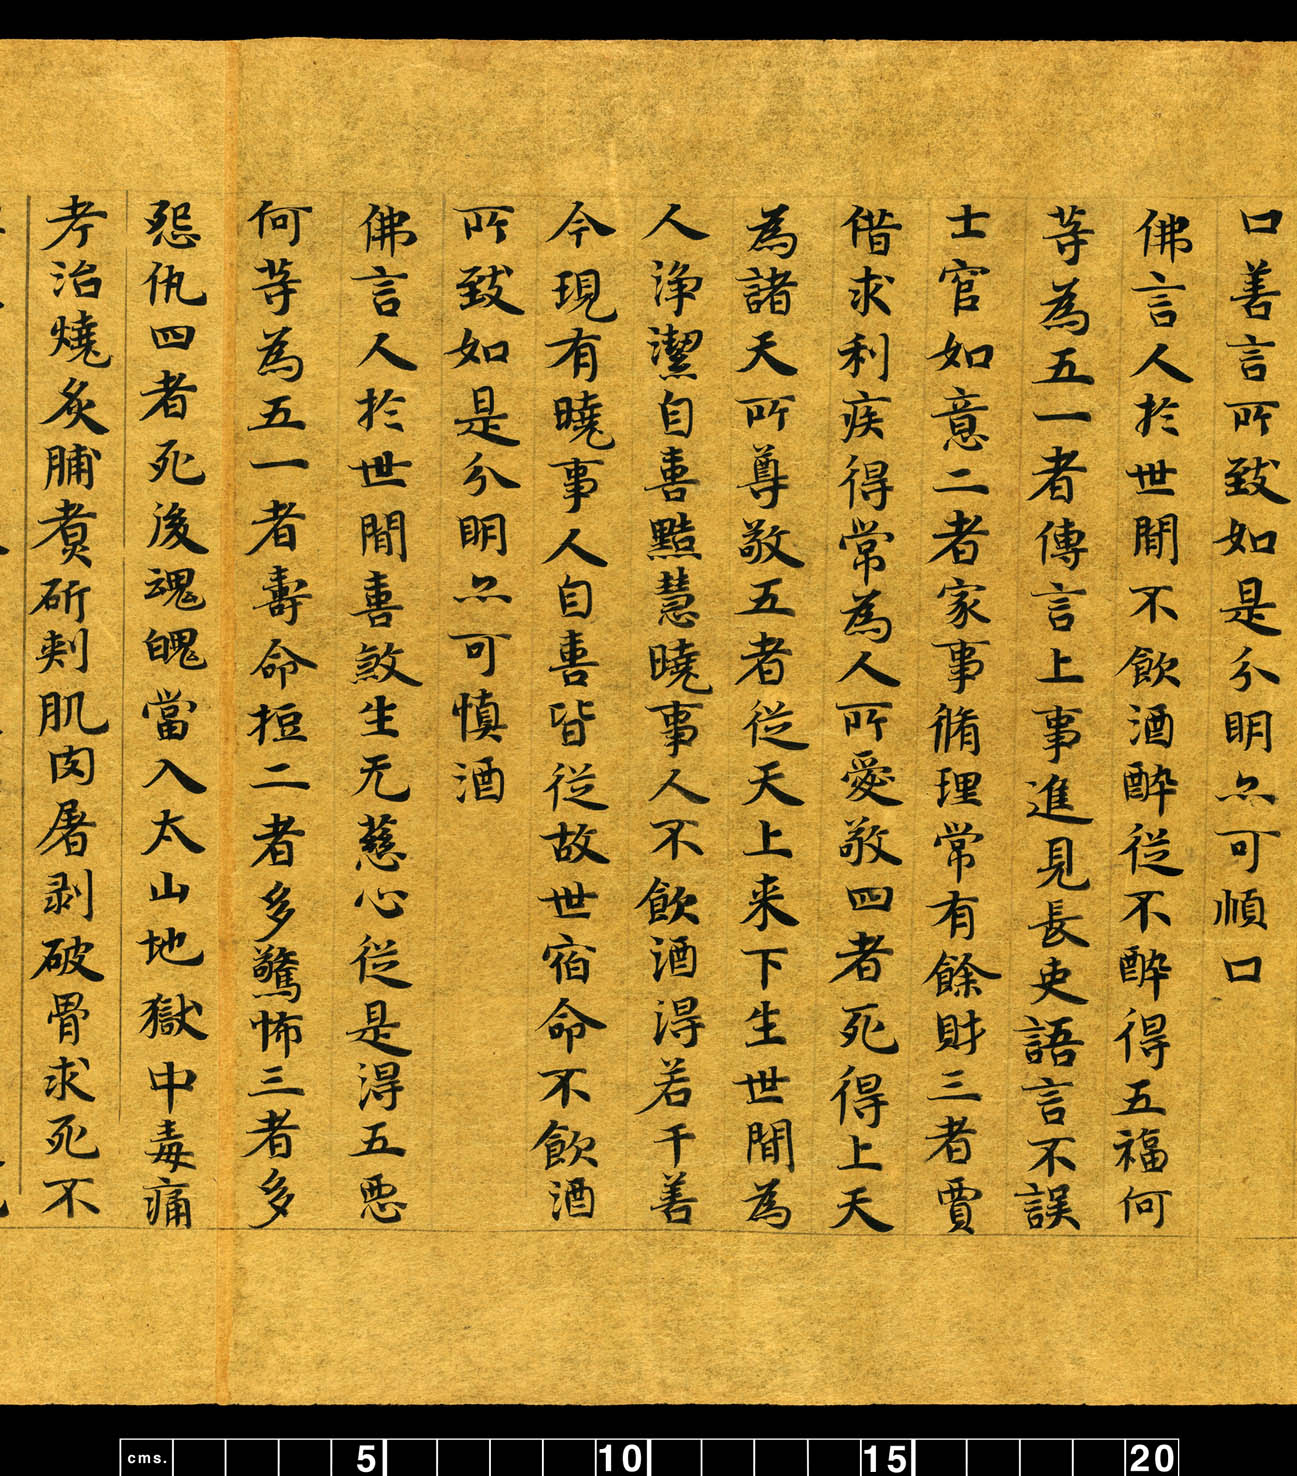 口善言所致如是分明亦可順口
佛言人於世間不飲酒醉從不醉得五福何
等為五一者傳言上事進見長吏語言不誤
士官如意二者家事脩理常有餘財三者賈
偕求利疾得常為人所愛敬四者死得上天
為諸天所尊敬五者從天上来下生世間為
人淨潔自憙黠慧曉事人不飲酒淂若干善
今現有曉事人自憙皆從故世宿命不飲酒
所致如是分明亦可慎酒
佛言人於世間憙煞生无慈心從是淂五惡
何等為五一者壽命𢭃二者多驚怖三者多
怨仇四者死後魂魄當入太山地獄中毒痛
考治燒炙脯煮斫刺肌肉屠剥破骨求死不
cms. 5 10 15 20